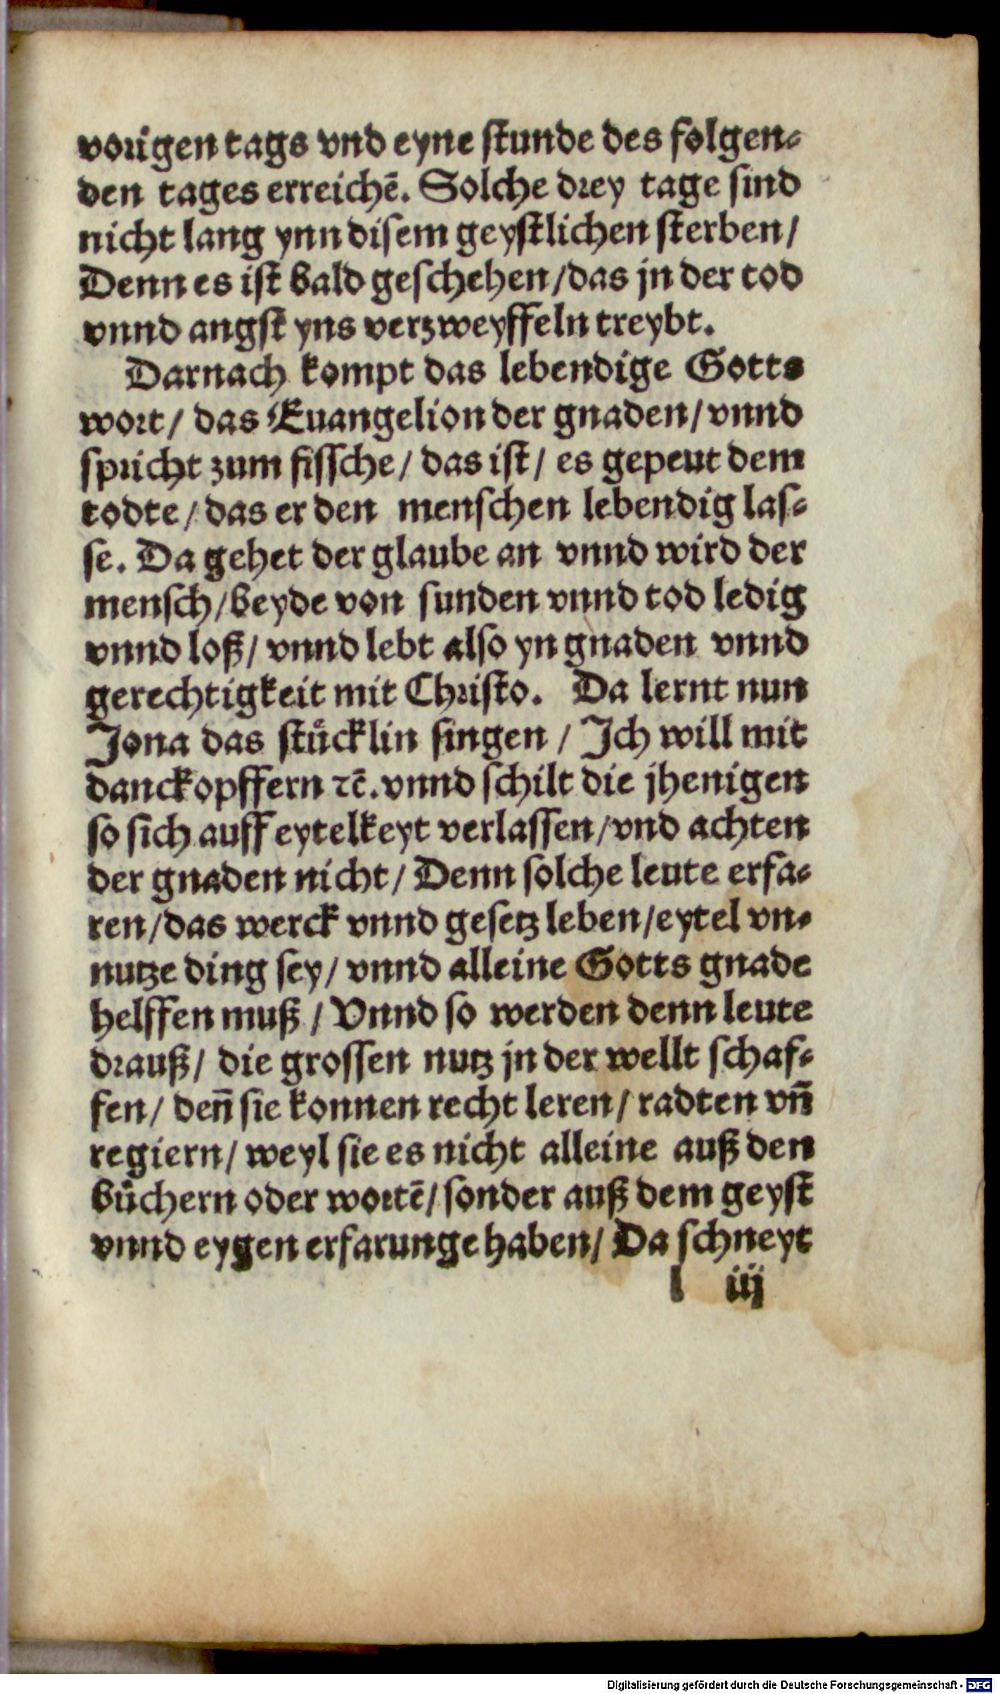 vorigen tags vnd eyne stunde des folgen-
den tages erreichē. Solche drey tage sind
nicht lang ynn disem geystlichen sterben/
Denn es ist bald geschehen/das jn der tod
vnnd angst yns verzweyffeln treybt.
Darnach kompt das lebendige Gotts
wort/ das Euangelion der gnaden/ vnnd
spricht zum fissche/ das ist/ es gepeut dem
todte/ das er den menschen lebendig las-
se. Da gehet der glaube an vnnd wird der
mensch/beyde von sunden vnnd tod ledig
vnnd loß/ vnnd lebt also yn gnaden vnnd
gerechtigkeit mit Christo. Da lernt nun
Jona das stůcklin singen / Ich will mit
danckopffern ꝛc̄. vnnd schilt die jhenigen
so sich auff eytelkeyt verlassen/vnd achten
der gnaden nicht/ Denn solche leute erfa-
ren/das werck vnnd gesetz leben/eytel vn-
nutze ding sey/ vnnd alleine Gotts gnade
helffen muß / Vnnd so werden denn leute
drauß/ die grossen nutz jn der wellt schaf-
fen/ deñ sie konnen recht leren/ radten vñ
regiern/ weyl sie es nicht alleine auß den
bůchern oder wortē/ sonder auß dem geyst
vnnd eygen erfarunge haben/ Da schneyt
l iij
Digitalisierung gefördert durch die Deutsche Forschungsgemeinschaft - DFG